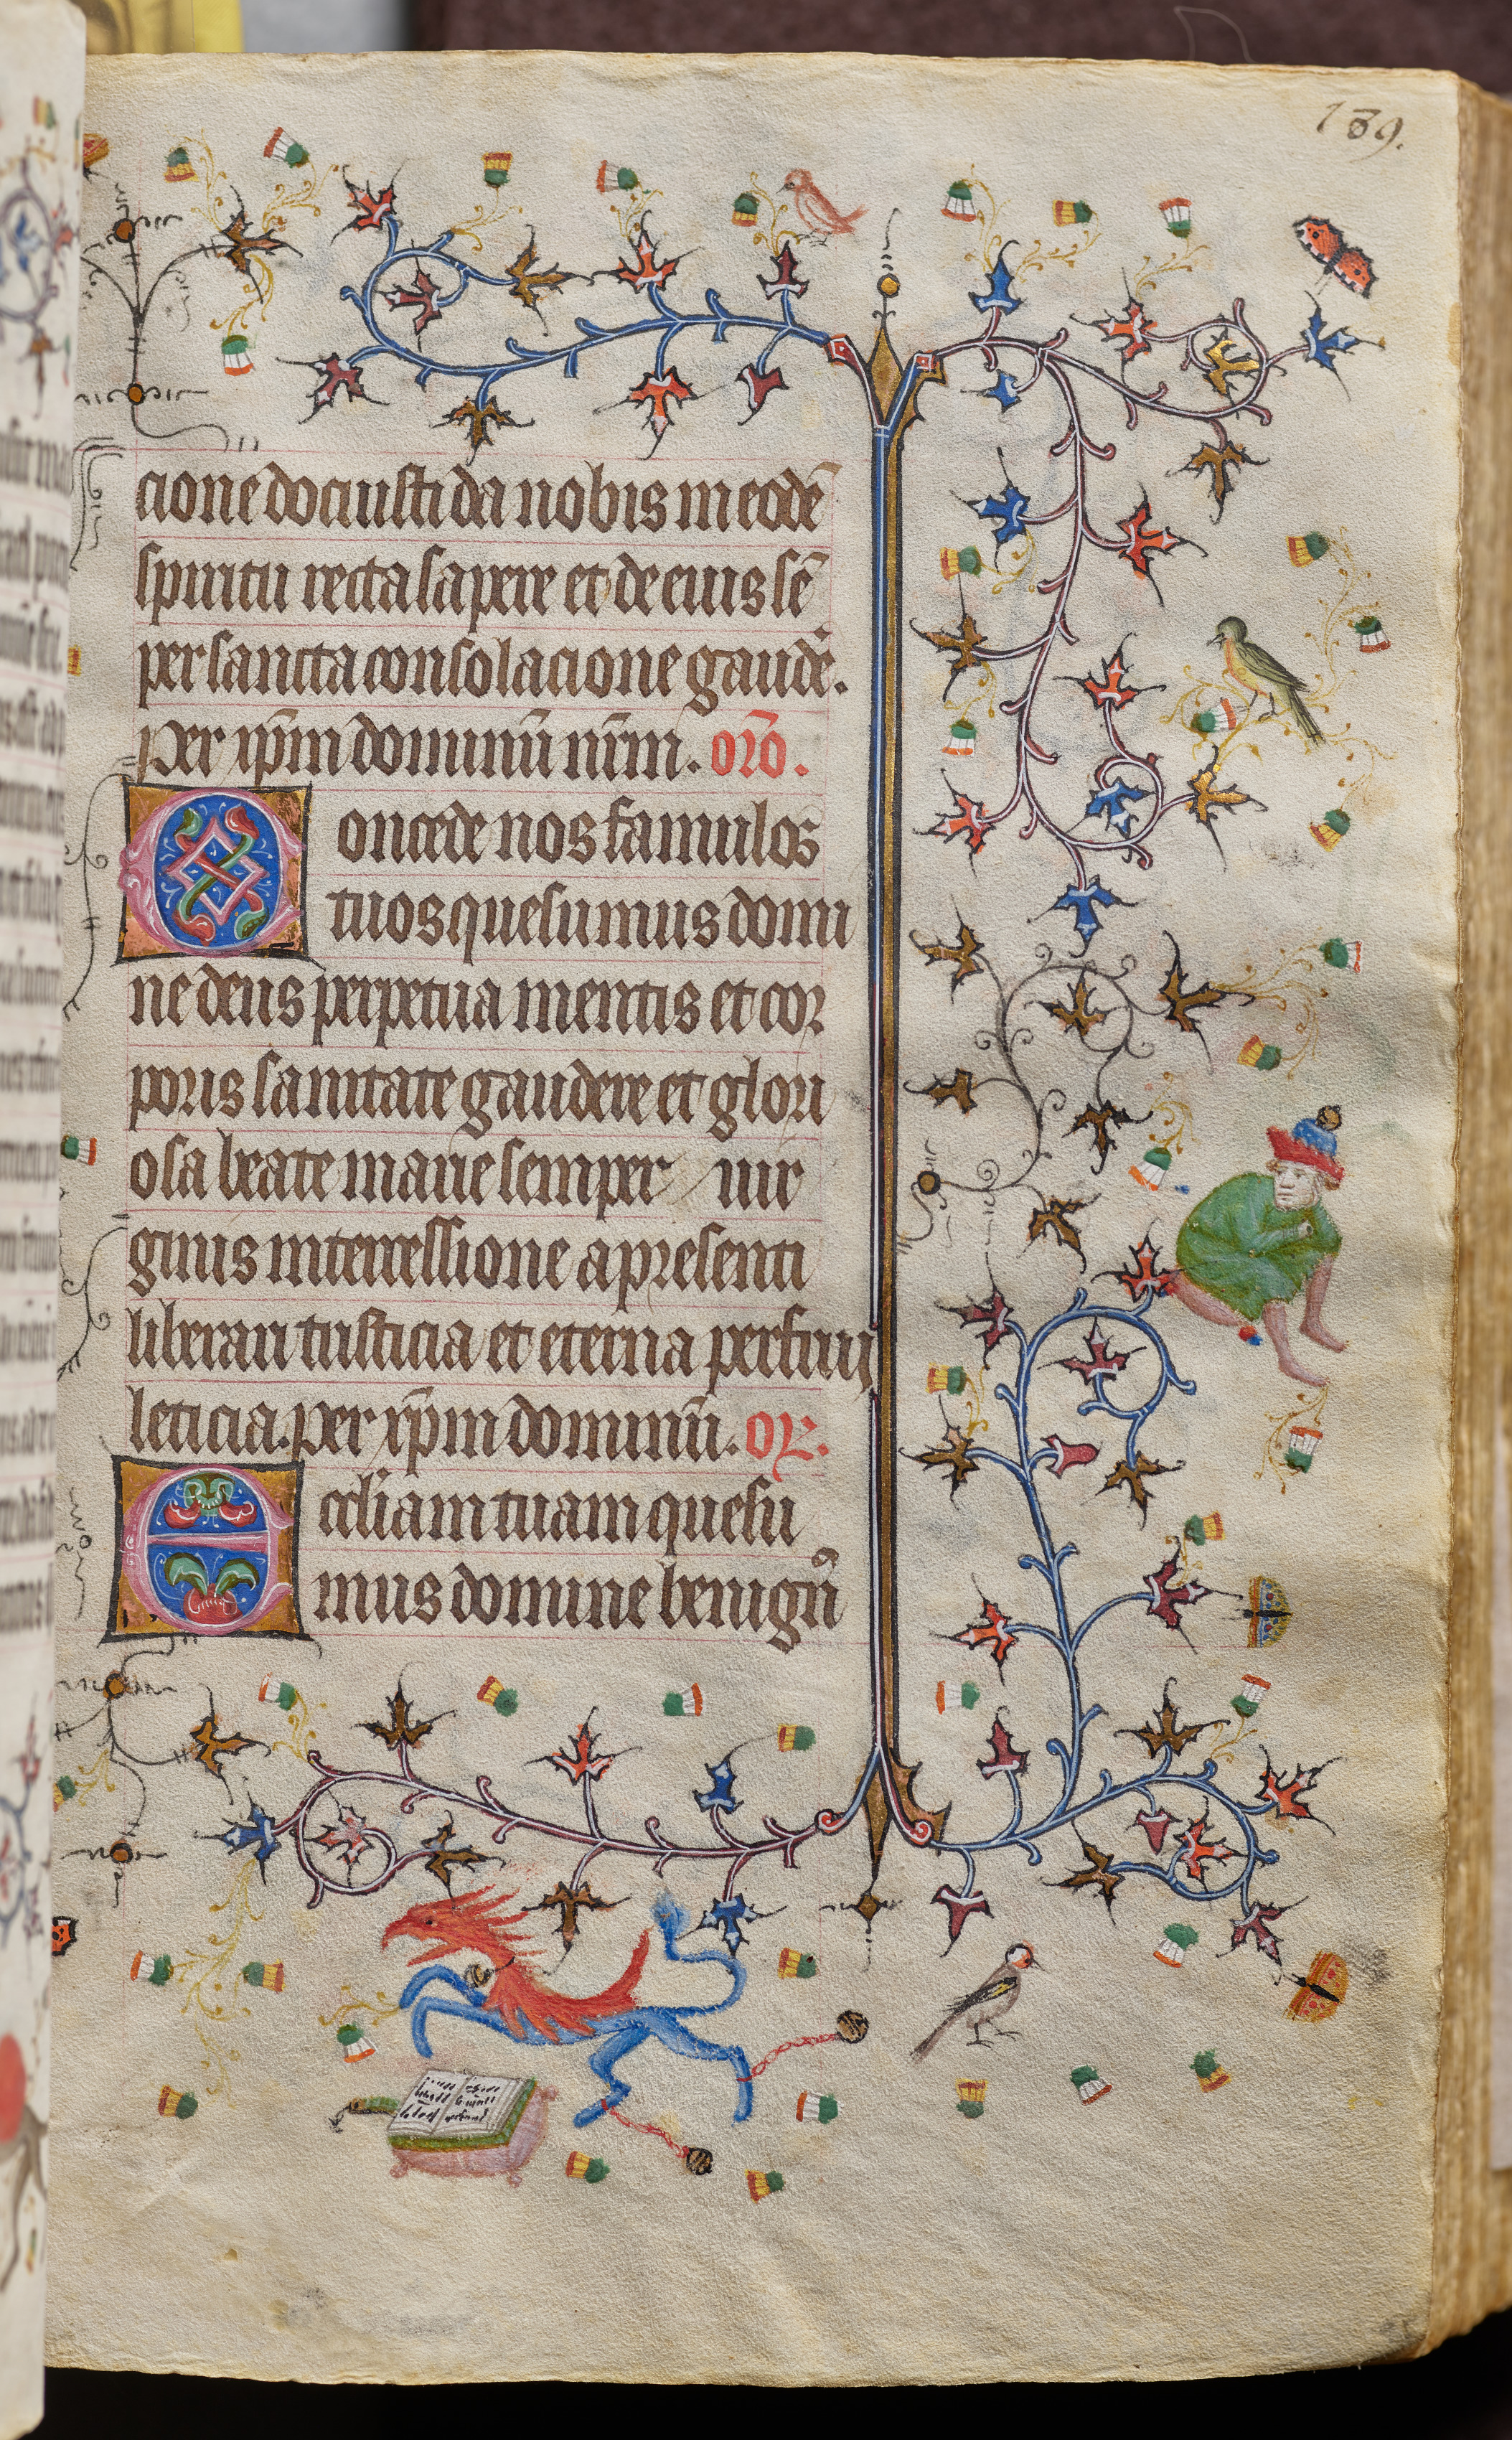 139.
cione dociusti da nobis in eodē
spiritu recta sapere et de eius sē
per sancta consolacione gaudē.
Per xp̄m dominū nr̄m. orō.
Concede nos famulos
tuos quesumus domi
ne deus perpetua mentis et cor
poris sanitate gaudere et glori
osa beate marie semper uir
ginis intercessione a presenti
liberari tristicia et eterna perfrui
leticia. per xp̄m dominū. or̄.
Eccl̄iam tuam quesu
mus domine benignꝰ